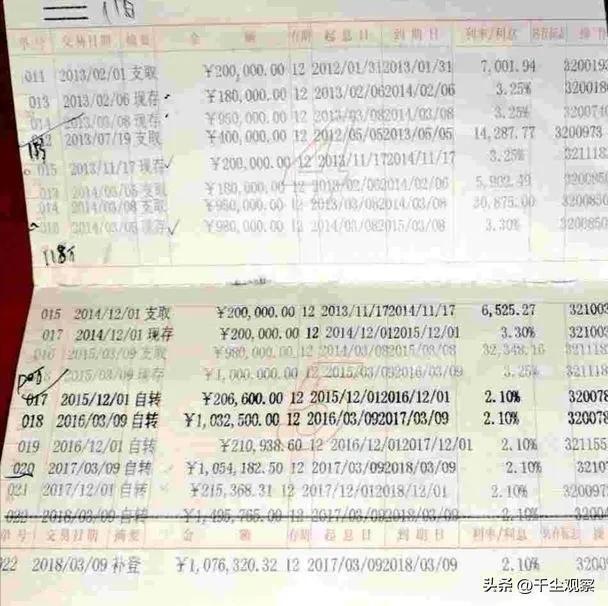 118
单号 交易日期 摘要 金额 存期 起息日 到期日 利率/利息 操作
011 2013/02/01 支取 ¥200,000.00 12 2012/01/31 2013/01/31 7,001.94 3200193
013 2013/02/06 现存 ¥180,000.00 12 2013/02/06 2014/02/06 3.25% 3200186
014 2013/03/08 现存 ¥950,000.00 12 2013/03/08 2014/03/08 3.25% 3200740
012 2013/07/19 支取 ¥400,000.00 12 2012/05/05 2013/05/05 14,287.77 3200973
015 2013/11/17 现存 ¥200,000.00 12 2013/11/17 2014/11/17 3.25% 321118
013 2014/03/08 支取 ¥180,000.00 12 2013/02/06 2014/02/06 3200850
014 2014/03/08 支取 ¥950,000.00 12 2013/03/08 2014/03/08 30,875.00 3200850
016 2014/03/08 现存 ¥980,000.00 12 2014/03/08 2015/03/08 3.30% 3200850
118万
015 2014/12/01 支取 ¥200,000.00 12 2013/11/17 2014/11/17 6,525.27 321003
017 2014/12/01 现存 ¥200,000.00 12 2014/12/01 2015/12/01 3.30% 321003
016 2015/03/09 支取 ¥980,000.00 12 2014/03/08 2015/03/08 32,348.16 321118
2015/03/09 现存 ¥1,000,000.00 12 2015/03/09 2016/03/09 3.25% 321118
017 2015/12/01 自转 ¥206,600.00 12 2015/12/01 2016/12/01 2.10% 320078
018 2016/03/09 自转 ¥1,032,500.00 12 2016/03/09 2017/03/09 2.10% 320078
019 2016/12/01 自转 ¥210,938.60 12 2016/12/01 2017/12/01 2.10% 321155
020 2017/03/09 自转 ¥1,054,182.50 12 2017/03/09 2018/03/09 2.10% 32107
021 2017/12/01 自转 ¥215,368.31 12 2017/12/01 2018/12/01 2.10% 320097
022 2018/03/09 自转 ¥1,495,765.00 12 2017/03/09 2018/03/09 2.10% 32009
单号 交易日期 摘要 金额 存期 起息日 到期日 利率/利息
022 2018/03/09 补登 ¥1,076,320.32 12 2017/03/09 2018/03/09 2.10% 32009
头条 @干尘观察